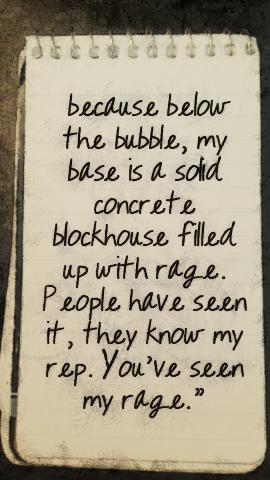 because below
the bubble, my
base is a solid
concrete
blockhouse filled
up with rage.
People have seen
it, they know my
rep. You've seen
my rage."